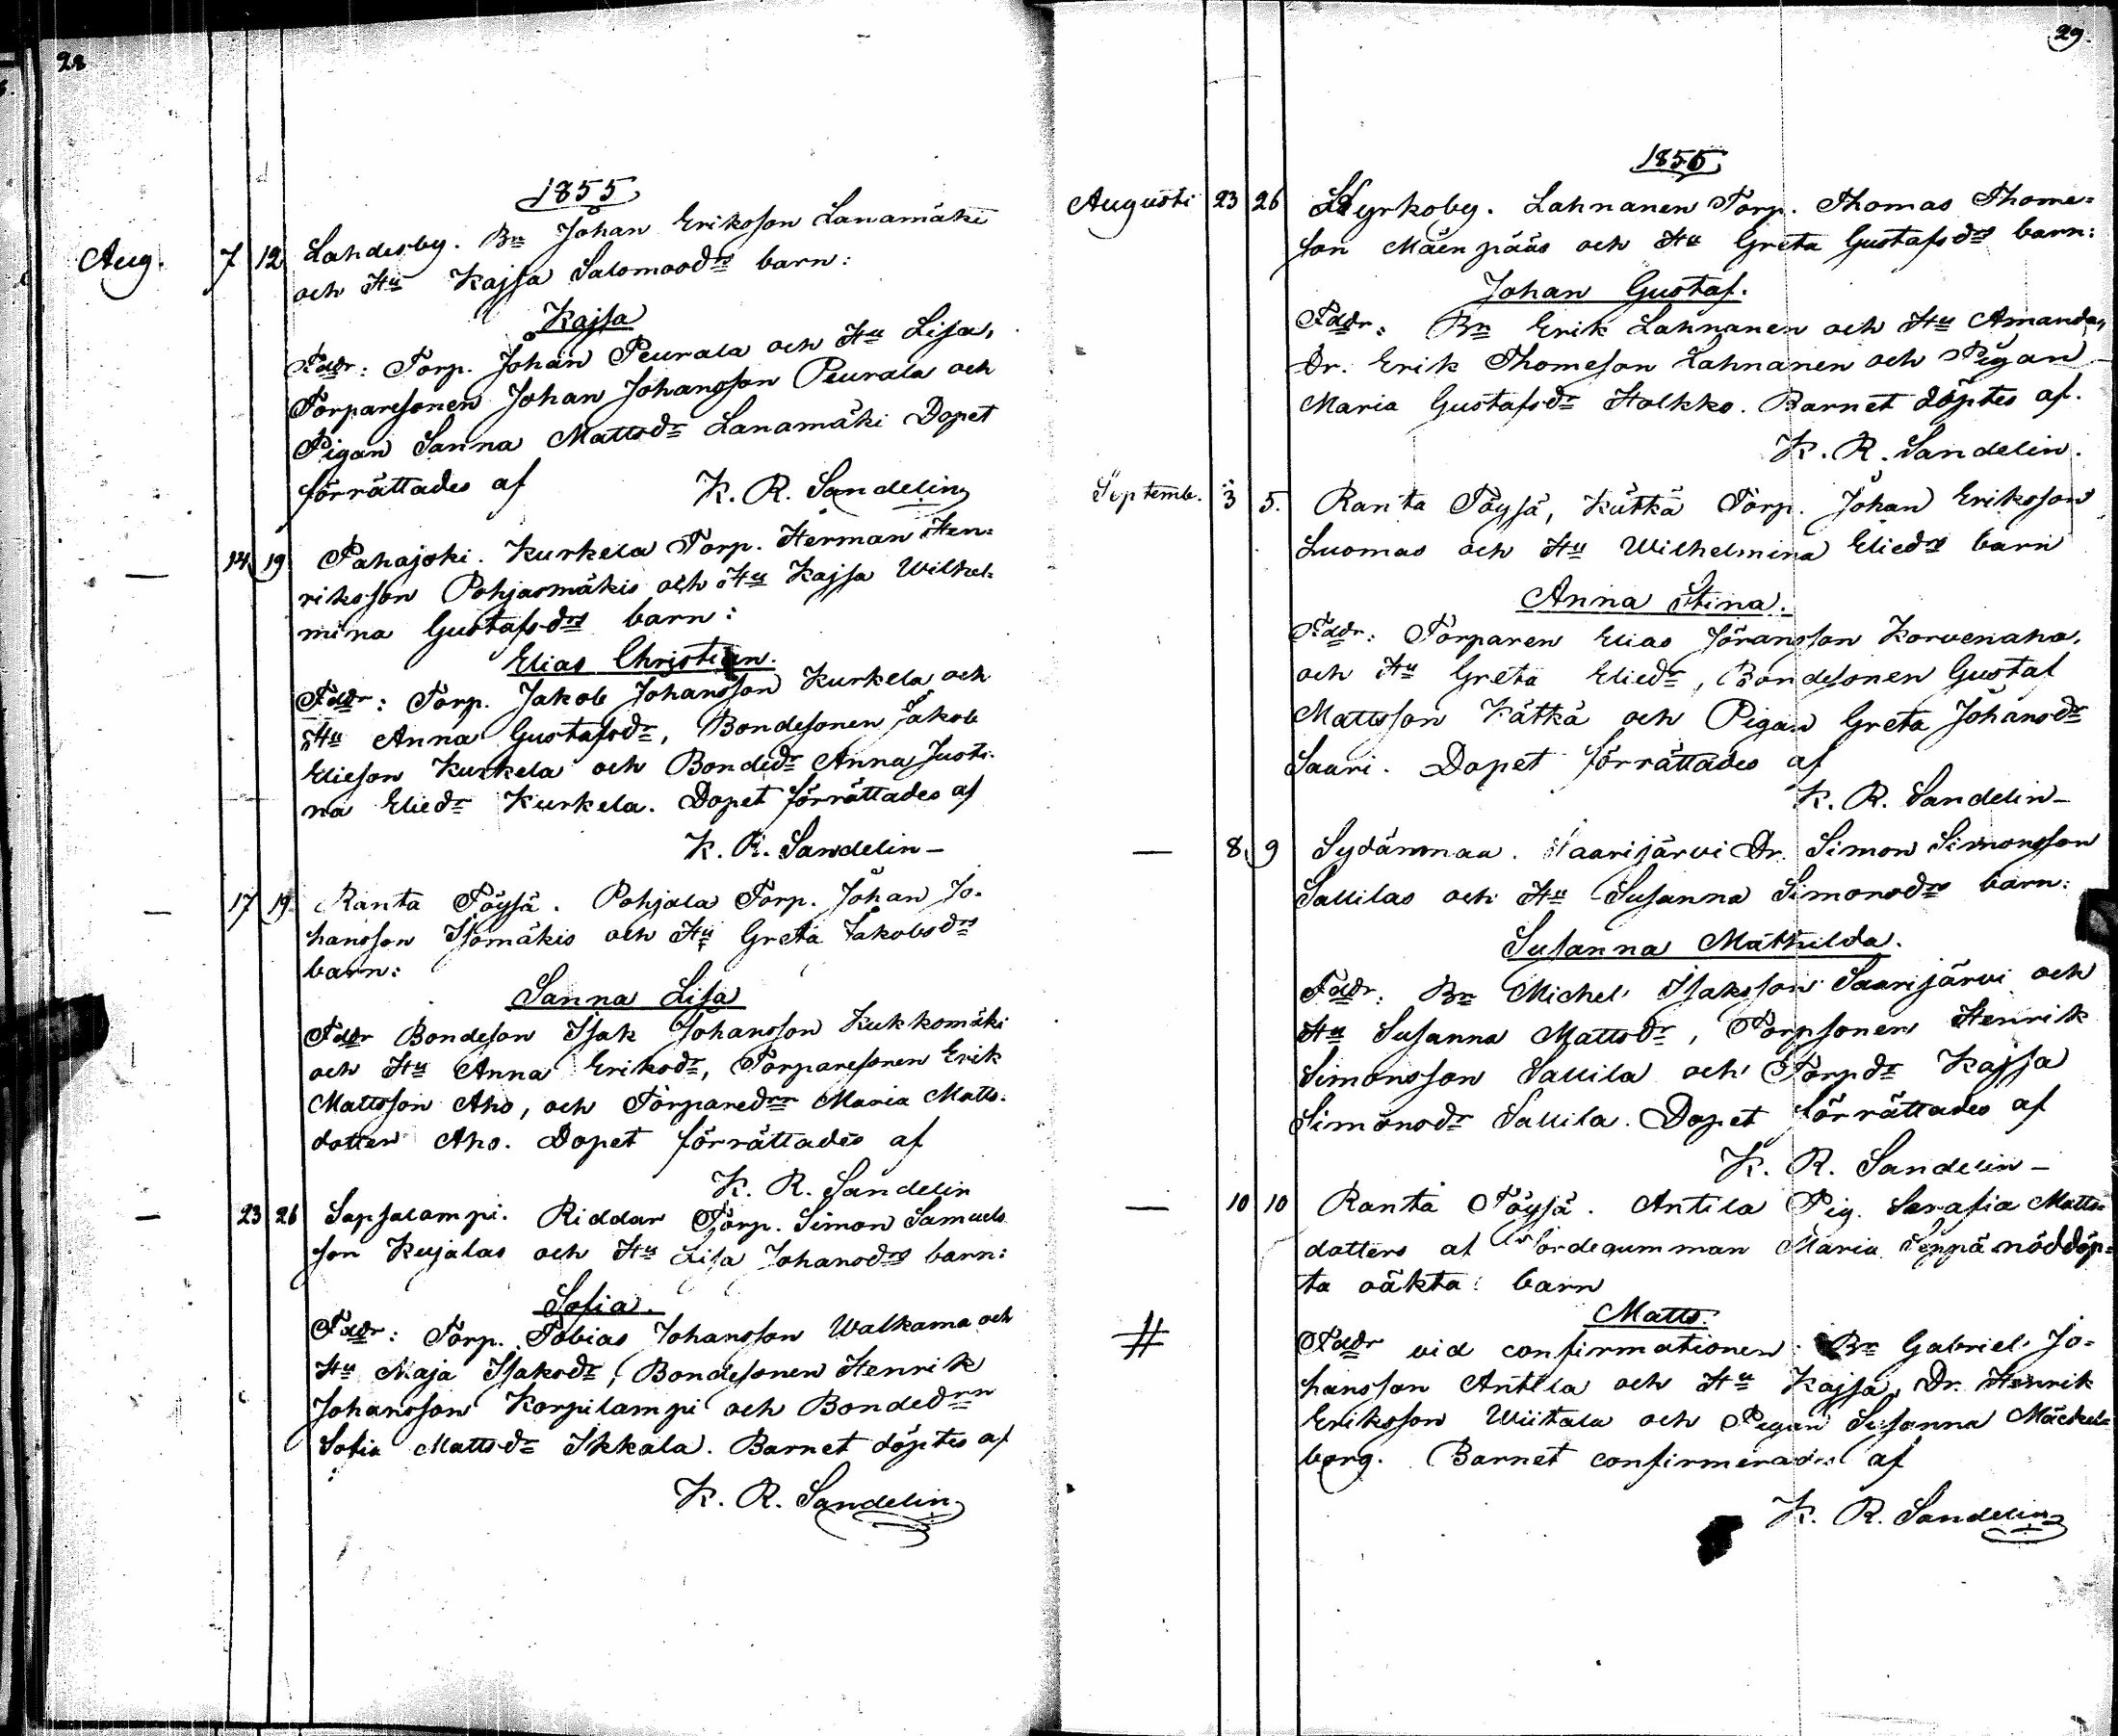 28
1855
Aug. 7 12 Lahdesby. Bn Johan Eriksson Lanamäki
och Hu Kajsa Salomoodrs barn:
Kajsa
Faddr: Torp. Johan Peurala och Hu Lisa,
Torparesonen Johan Johansson Peurala och
Pigan Sanna Mattsdr Lanamäki Dopet
förrättades af K. R. Sandelin
— 14 19 Pahajoki. Kurkela Torp. Herman Hen-
riksson Pohjasmäkis och Hu Kajsa Wilhel-
mina Gustafsdrs barn:
Elias Christian.
Faddr: Torp. Jakob Johansson Kurkela och
Hu Anna Gustafsdr, Bondesonen Jakob
Elieson Kurkela och Bondedr Anna Justi-
na Eliedr Kurkela. Dopet förrättades af
K. R. Sandelin —
— 17 19 Ranta Töysä. Pohjala Torp. Johan Jo-
hansson Isomäkis och Hu Greta Jakobsdrs
barn:
Sanna Lisa
Faddr Bondeson Isak Johansson Kukkomäki
och Hu Anna Eriksdr, Torparesonen Erik
Mattsson Aho, och Torparedrn Maria Matts-
dotter Aho. Dopet förrättades af
K. R. Sandelin
— 23 26 Sapsalampi. Riddar Torp. Simon Samuels
son Kujalas och Hu Lisa Johansdrs barn:
Sofia.
Faddr: Torp. Tobias Johansson Walkama och
Hu Maja Isaksdr, Bondesonen Henrik
Johansson Korpilampi och Bondedrn
Sofia Mattsdr Ikkala. Barnet döptes af
K. R. Sandelin
29.
1855
Augusti 23 26 Kyrkoby. Lahnanen Torp. Thomas Thome-
son Mäenpääs och Hu Greta Gustafsdrs barn:
Johan Gustaf.
Faddr: Bn Erik Lahnanen och Hu Amanda,
Dr. Erik Thomeson Lahnanen och Pigan
Maria Gustafsdr Holkko. Barnet döptes af.
K. R. Sandelin.
Septemb. 3 5. Ranta Töysä, Kätkä Torp. Johan Eriksson
Luomas och Hu Wilhelmina Eliedrs barn
Anna Stina.
Faddr: Torparen Elias Jöransson Korvenaho,
och Hu Greta Eliedr, Bondesonen Gustaf
Mattsson Kätkä och Pigan Greta Johansdr
Saari. Dopet förrättades af
K. R. Sandelin —
— 8 9 Sydänmaa. Saarijärvi Dr. Simon Simonsson
Sallilas och Hu Susanna Simonsdrs barn:
Susanna Mathilda.
Faddr: Bn Michel Isaksson Saarijärvi och
Hu Susanna Mattsdr, Torpsonen Henrik
Simonsson Sallila och Torpdr Kajsa
Simonsdr Sallila. Dopet förrättades af
K. R. Sandelin —
— 10 10 Ranta Töysä. Antila Pig. Serafia Matts-
dotters af Jordegumman Maria Seppä nöddöp-
ta oäkta barn
Matts.
# Faddr vid confirmationen: Bn Gabriel Jo-
hansson Antila och Hu Kajsa, Dr. Henrik
Eriksson Wiitala och Pigan Susanna Mäckel-
borg. Barnet confirmerades af
K. R. Sandelin